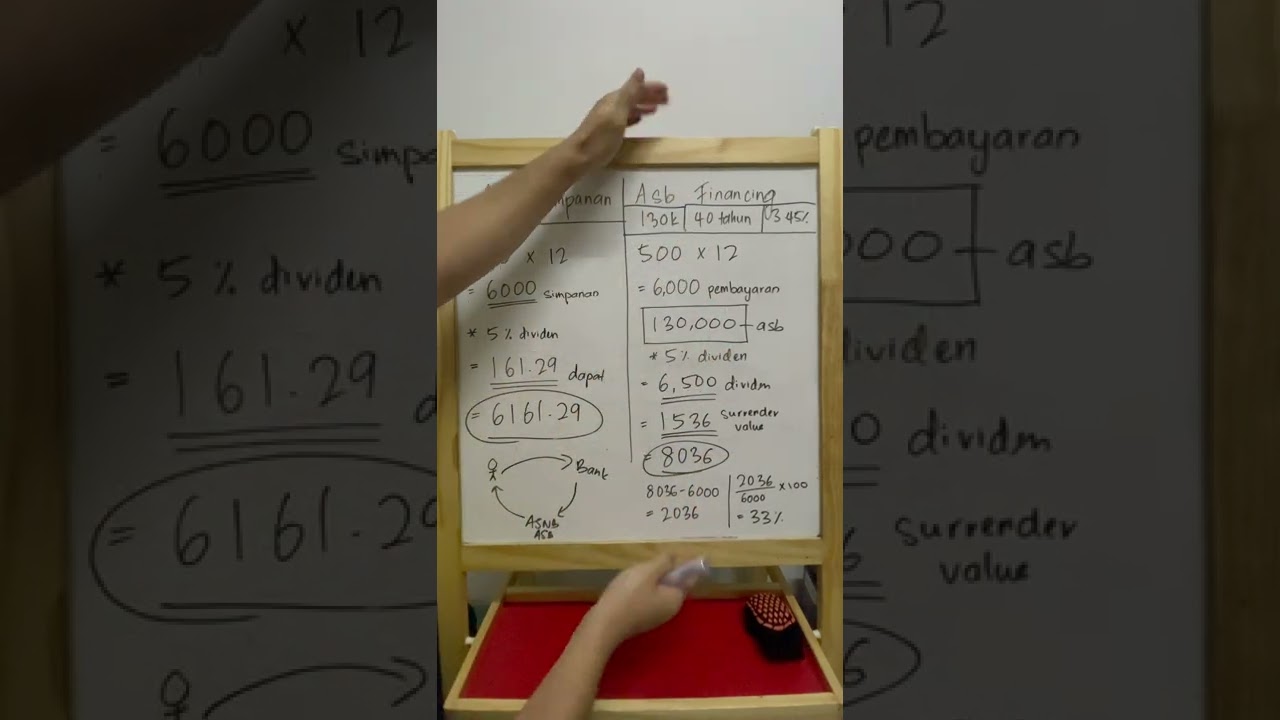 simpanan
x 12
= 6000 simpanan
* 5% dividen
= 161.29 dapat
= 6161.29
Bank
ASNB
ASB
Asb Financing
130k 40 tahun 3.45%
500 x 12
= 6,000 pembayaran
130,000 - asb
* 5% dividen
= 6,500 dividen
= 1536 surrender value
= 8036
8036-6000
= 2036
2036/6000 x 100
= 33%